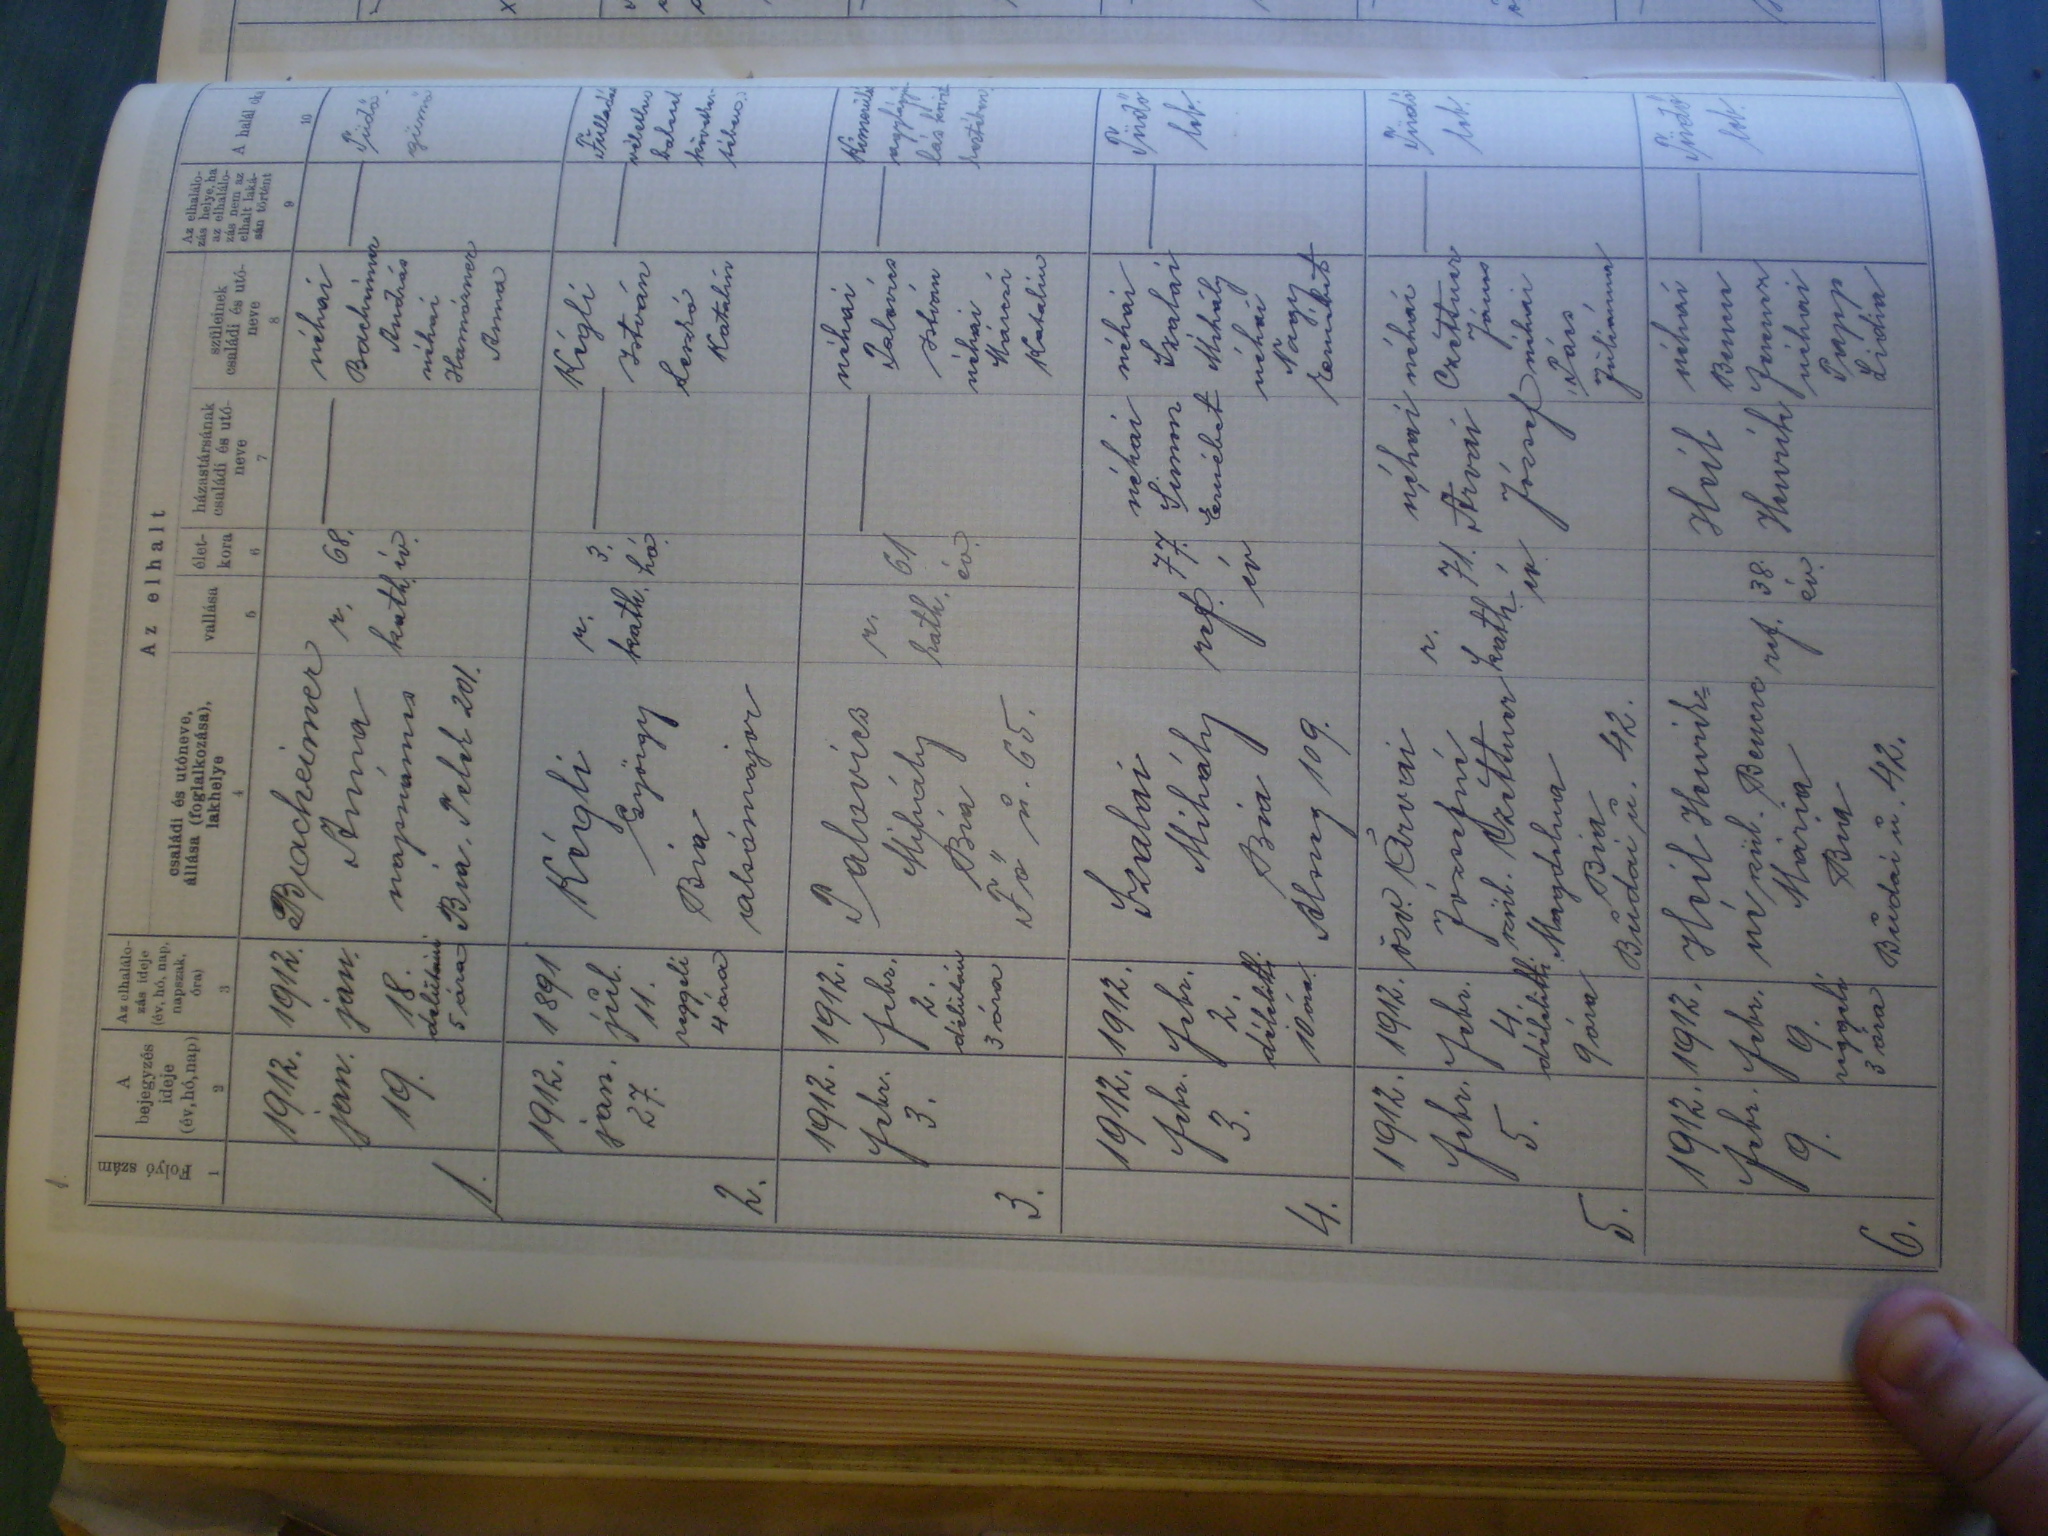 1.
Az elhalt
Folyó szám
A bejegyzés ideje (év, hó, nap)
Az elhalálozás ideje (év, hó, nap, napszak, óra)
családi és utóneve, állása (foglalkozása), lakhelye
vallása
életkora
házastársának családi és utóneve
szüleinek családi és utóneve
Az elhalálozás helye, ha az elhalálozás nem az elhalt lakásán történt
A halál oka
1 2 3 4 5 6 7 8 9 10
1.
1912.
jan.
19.
1912.
jan.
18.
délutáni
5 óra
Bacheimer
Anna
napszámos
Bia, Telek 201.
r.
kath.
68.
év.
néhai
András
néhai
Anna
Tüdő-
gümő
2.
1912.
jan.
27.
1891
júl.
11.
reggeli
4 óra
Kégli
György
Bia
alsómajor
r.
kath.
3.
hó
Kégli
István
Katalin
3.
1912.
febr.
3.
1912.
febr.
2.
délutáni
3 óra
Palovics
Mihály
Bia
Fő u. 65.
r.
kath.
61
év.
néhai
Palovics
István
néhai
Katalin
4.
1912.
febr.
3.
1912.
febr.
2.
délelőtti
10 óra
Szalai
Mihály
Bia
Alszeg 109.
ref.
77.
év
néhai
Simon
Erzsébet
néhai
Szalai
Mihály
néhai
Nagy
Erzsébet
Tüdő
lob.
5.
1912.
febr.
5.
1912.
febr.
4
délelőtti
9 óra
özv. Árvai
Józsefné
szül. Czettner
Magdolna
Bia
Budai u. 42.
r.
kath.
71.
év.
néhai
Árvai
József
néhai
Czettner
János
néhai
Julianna
Tüdő
lob.
6.
1912.
febr.
9.
1912.
febr.
9.
reggeli
3 óra
Heil Henrik=
né szül. Bencze
Mária
Bia
Budai u. 42.
ref.
38.
év.
Heil
Henrik
néhai
néhai
Papp
Lidia
Tüdő
lob.